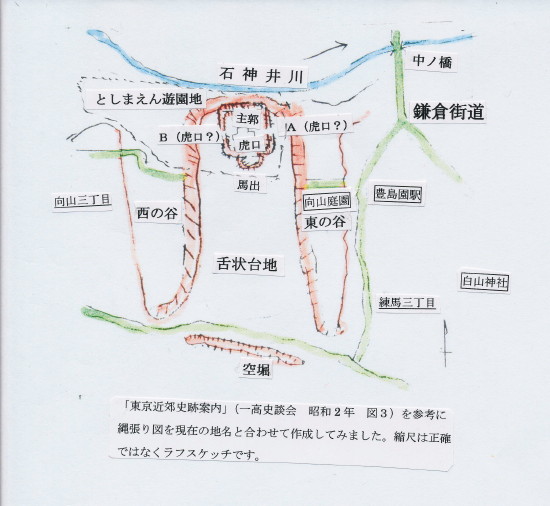 中ノ橋
石神井川
としまえん遊園地
鎌倉街道
主郭
B（虎口？）
A（虎口？）
虎口
馬出
向山三丁目
向山庭園
豊島園駅
西の谷
東の谷
舌状台地
白山神社
練馬三丁目
空堀
「東京近郊史跡案内」（一高史談会　昭和２年　図３）を参考に
縄張り図を現在の地名と合わせて作成してみました。縮尺は正確
ではなくラフスケッチです。